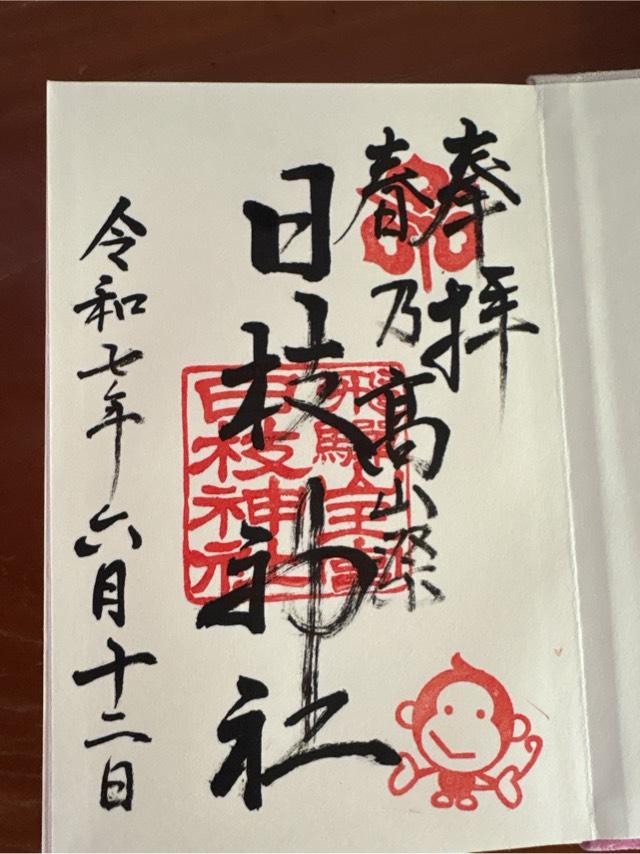 奉拝
春乃高山祭
飛驒山王宮
日枝神社
日枝神社
令和七年六月十二日